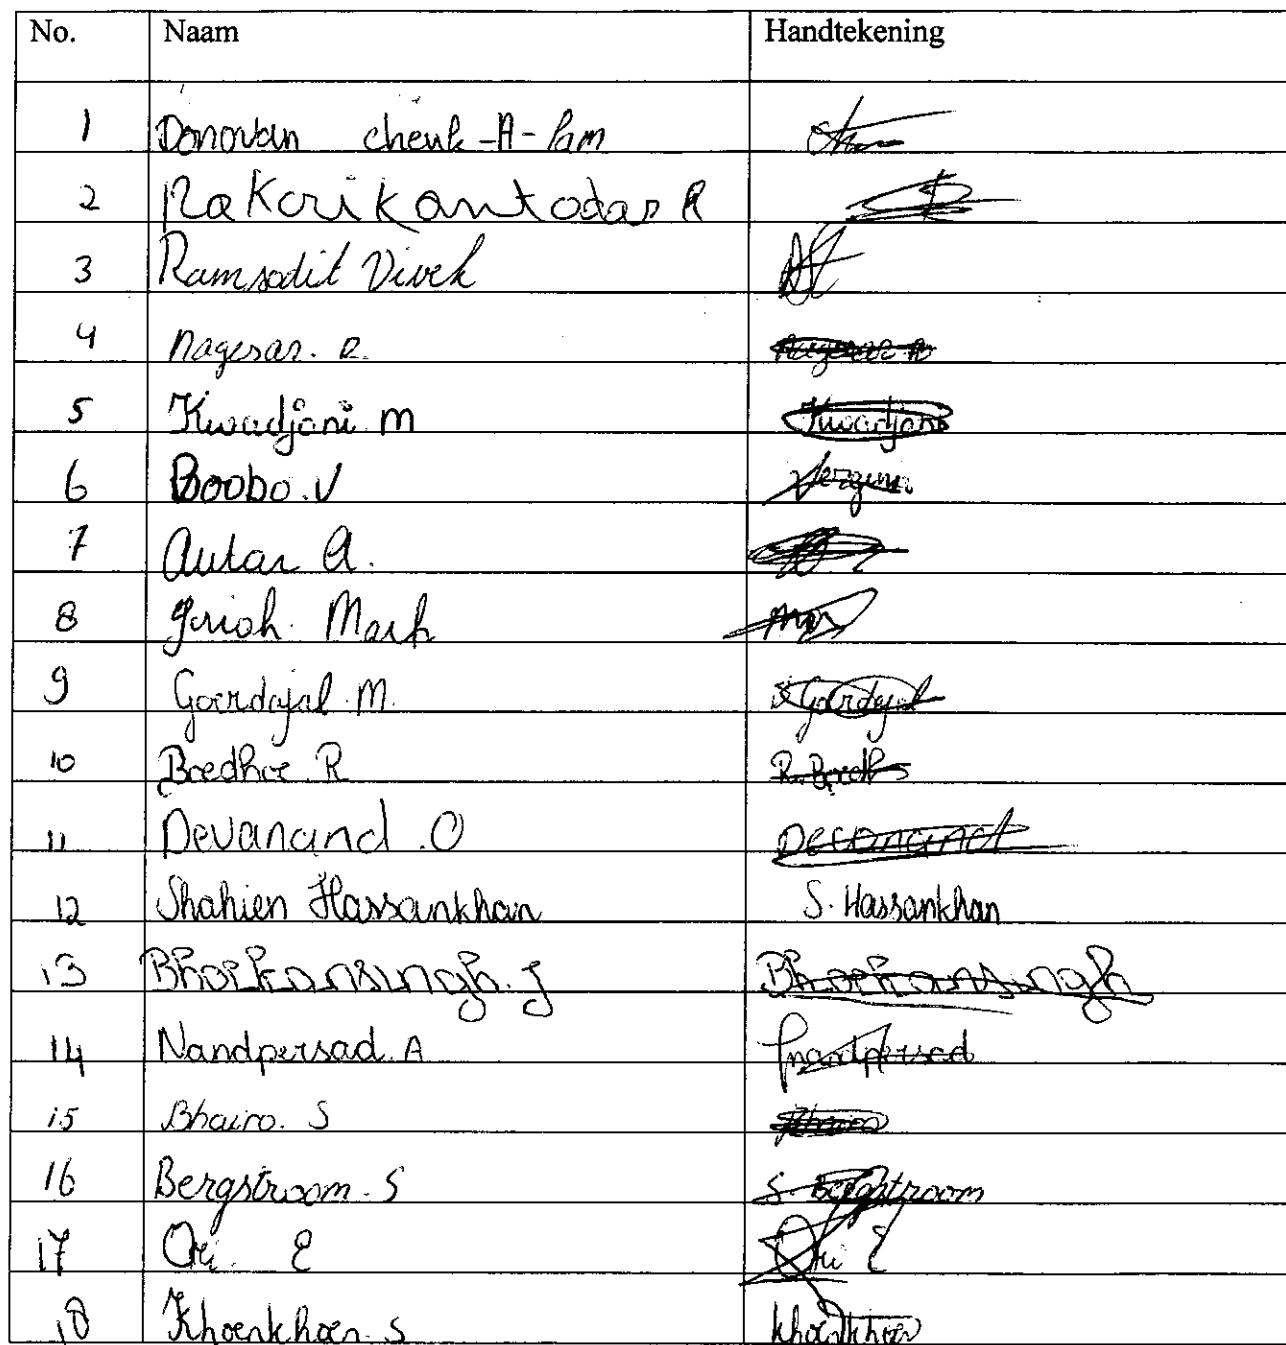 No. Naam Handtekening
1 Donovan cheuk-A-Lam
2 Rakorikantodar R
3 Ramsodit Vivek
4 Nagesar. R.
5 Kwadjani M Kwadjani
6 Boobo. V
7 Autar A.
8 Jeriah. Mark
9 Goerdajal M. Goerdajal
10 Boedhoe R R. Boedh
11 Devanand. O Devanand
12 Shahien Hassankhan S. Hassankhan
13 Bhoekansingh. J Bhoekansingh
14 Nandpersad. A nandpersad
15 Bhairo. S Bhairo
16 Bergstroom. S S. Bergstroom
17 Ori. E Ori E
18 Khoenkhoen. S khoenkhoen